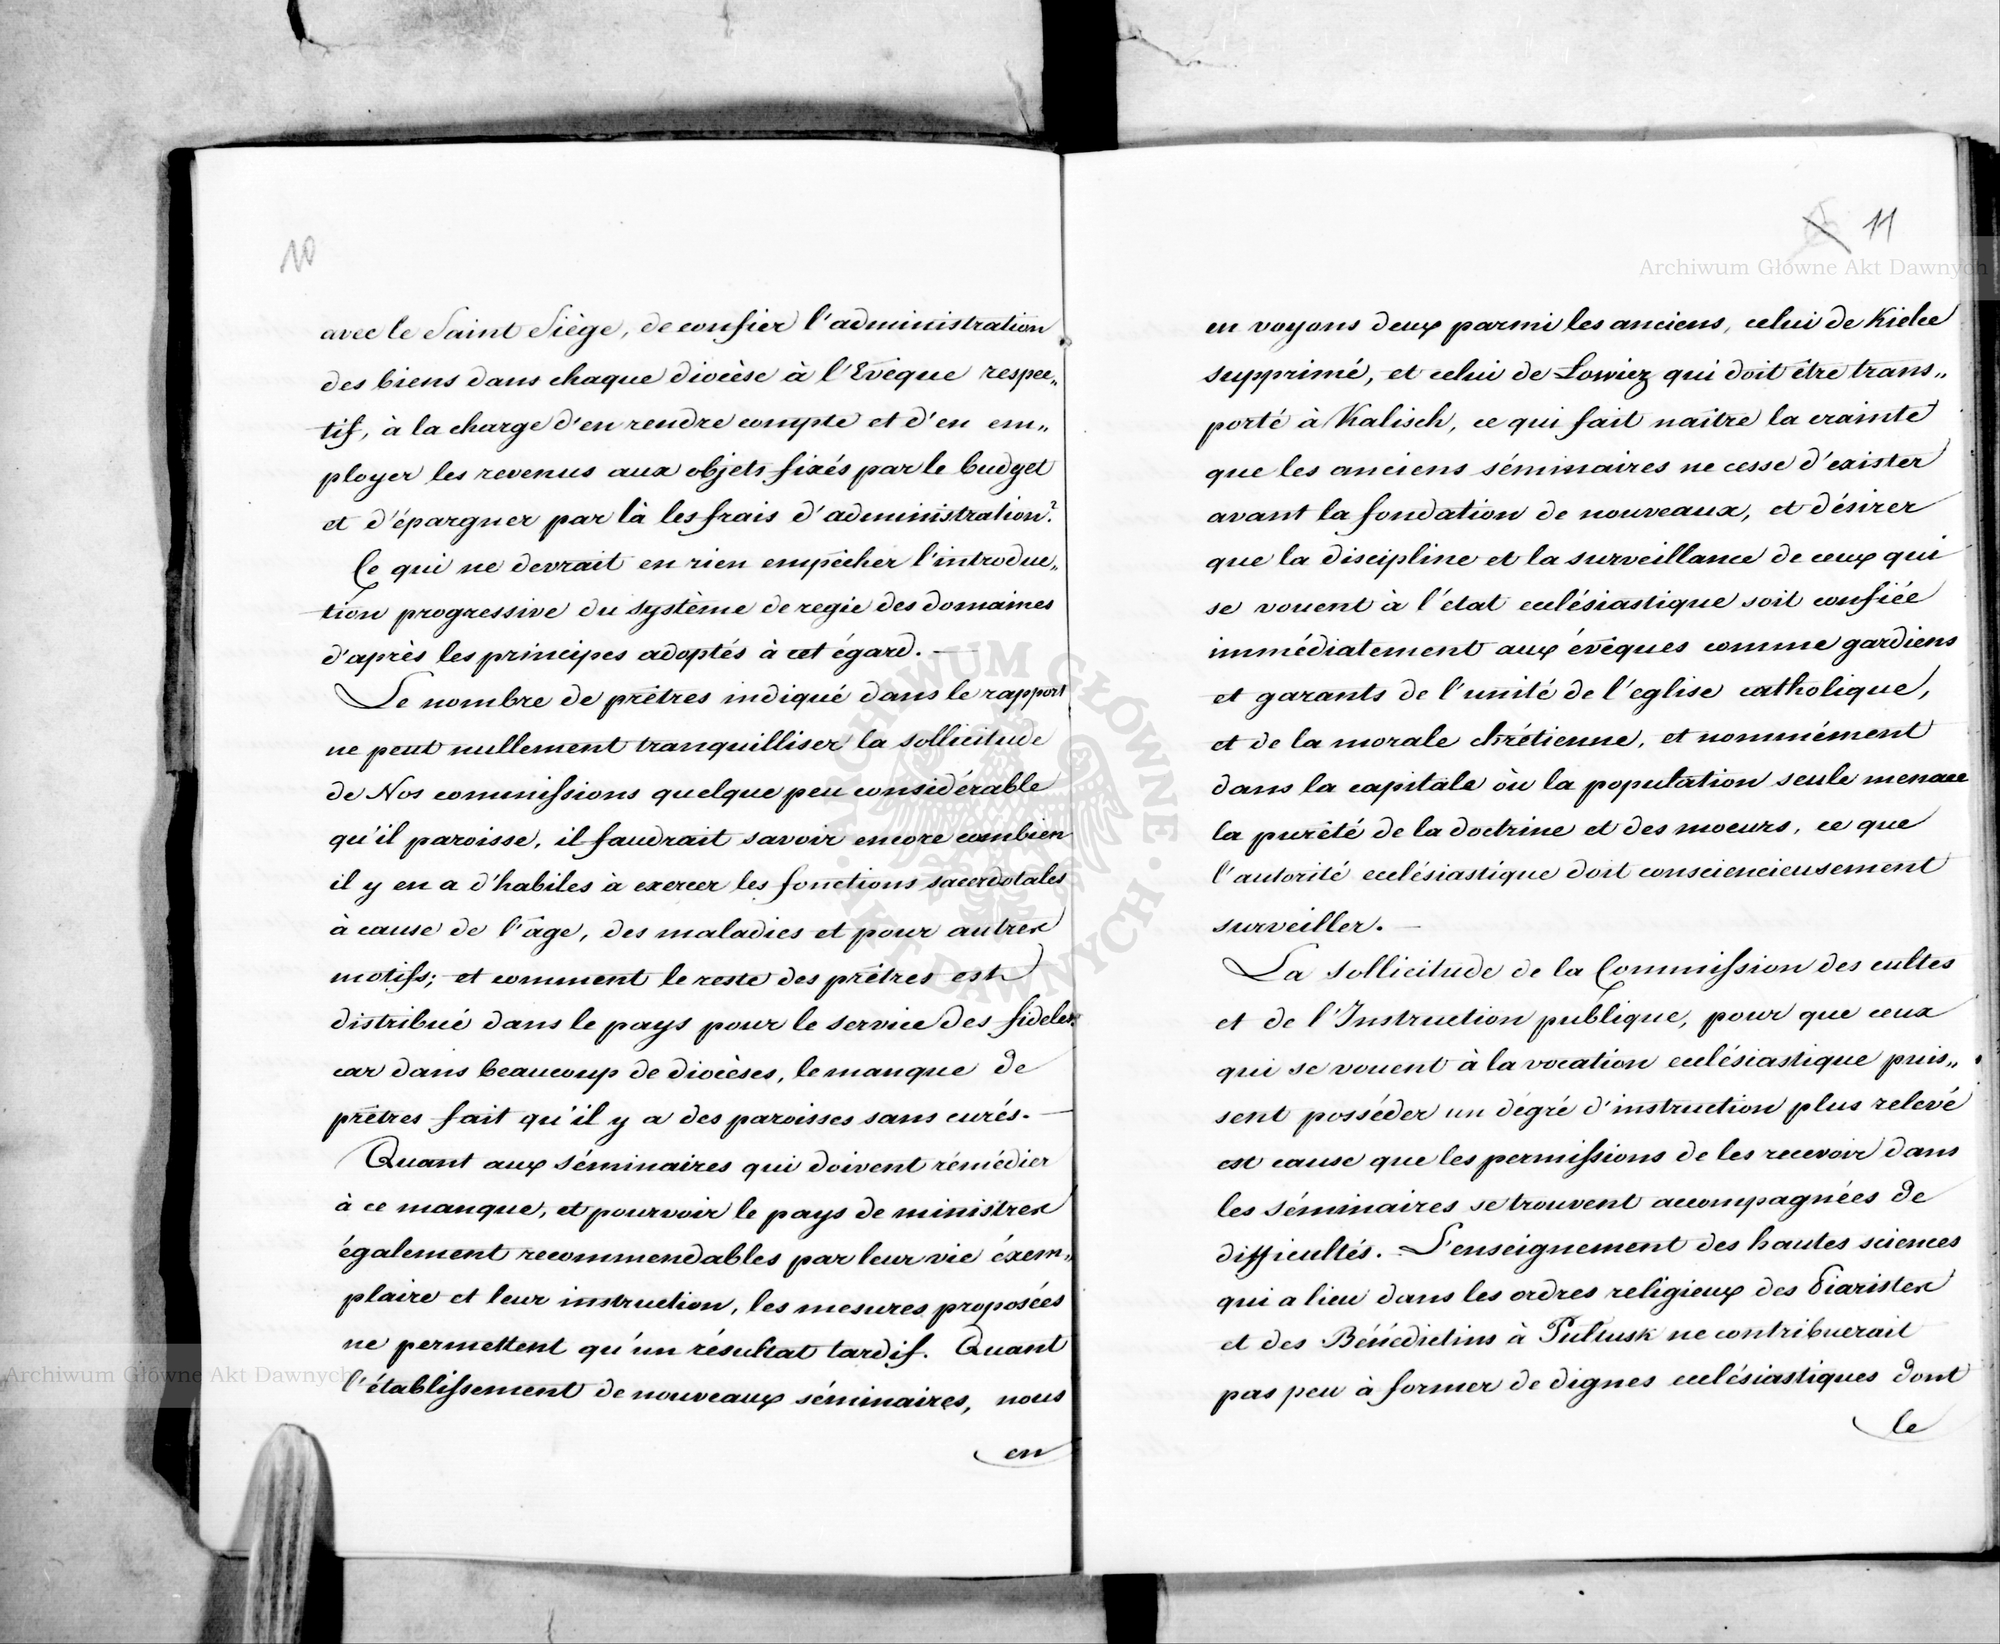 10
avec le Saint Siège, de confier l'administration
des biens dans chaque diocèse à l'Evêque respec„
tif, à la charge d'en rendre compte et d'en em„
ployer les revenus aux objets fixés par le budget
et d'épargner par là les frais d'administration?
Ce qui ne devrait en rien empêcher l'introduc„
tion progressive du système de regie des domaines
d'après les principes adoptés à cet égard. —
Le nombre de prêtres indiqué dans le rapport
ne peut nullement tranquilliser la sollicitude
de Nos commissions quelque peu considérable
qu'il paroisse, il faudrait savoir encore combien
il y en a d'habiles à exercer les fonctions sacerdotales
à cause de l'âge, des maladies et pour autres
motifs; et comment le reste des prêtres est
distribué dans le pays pour le service des fideles
car dans beaucoup de diocèses, le manque de
prêtres fait qu'il y a des paroisses sans curés. —
Quant aux séminaires qui doivent rémédier
à ce manque, et pourvoir le pays de ministres
également recommendables par leur vie éxem„
plaire et leur instruction, les mesures proposées
ne permettent qu'un résultat tardif. Quant
l'établissement de nouveaux séminaires, nous
en
11
en voyons deux parmi les anciens, celui de Kielce
supprimé, et celui de Lowicz qui doit être trans„
porté à Kalisch, ce qui fait naître la crainte
que les anciens séminaires ne cesse d'exister
avant la fondation de nouveaux, et désirer
que la discipline et la surveillance de ceux qui
se vouent à l'état ecclésiastique soit confiée
immédiatement aux évêques comme gardiens
et garants de l'unité de l'eglise catholique,
et de la morale chrétienne, et nommément
dans la capitale où la population seule menace
la pureté de la doctrine et des moeurs, ce que
l'autorité ecclésiastique doit consciencieusement
surveiller. —
La sollicitude de la Commission des cultes
et de l'Instruction publique, pour que ceux
qui se vouent à la vocation ecclésiastique puis„
sent posséder un dégré d'instruction plus relevé
est cause que les permissions de les recevoir dans
les séminaires se trouvent accompagnées de
difficultés. L'enseignement des hautes sciences
qui a lieu dans les ordres religieux des Piaristes
et des Bénédictins à Pultusk ne contribuerait
pas peu à former de dignes ecclésiastiques dont
le
Archiwum Główne Akt Dawnych
Archiwum Główne Akt Dawnych
ARCHIWUM GŁÓWNE AKT DAWNYCH